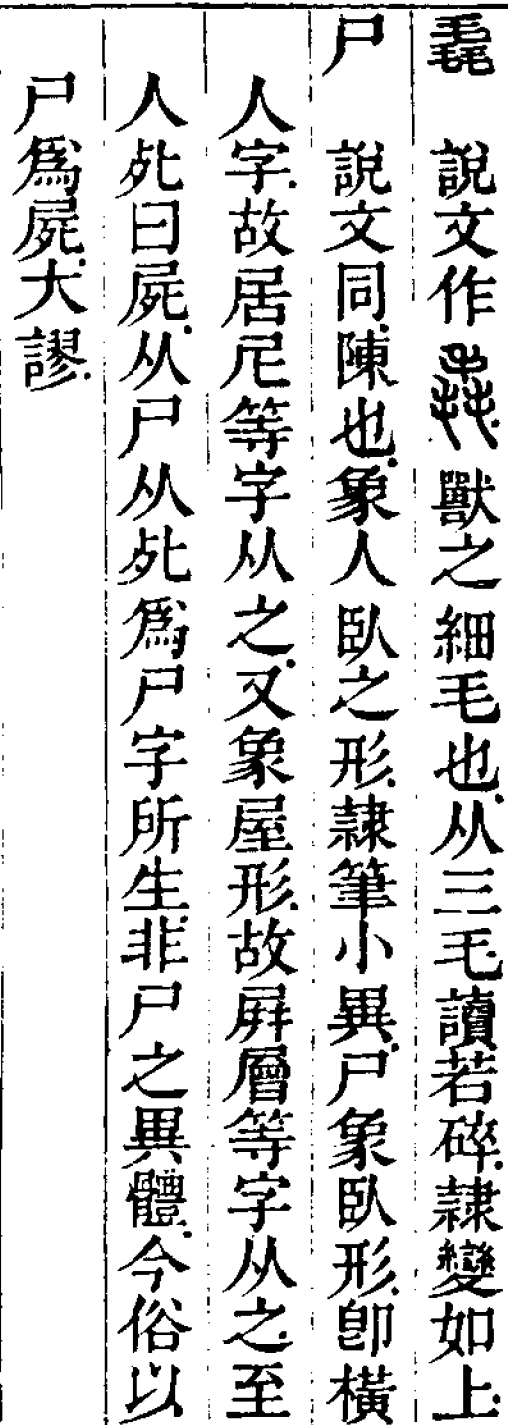 毳　說文作𣯍獸之細毛也从三毛讀若碎隷變如上
尸　說文同陳也象人臥之形隷筆小異尸象臥形卽橫
人字故居尼等字从之又象屋形故屛層等字从之至
人死曰屍从尸从死爲尸字所生非尸之異體今俗以
尸爲屍大謬